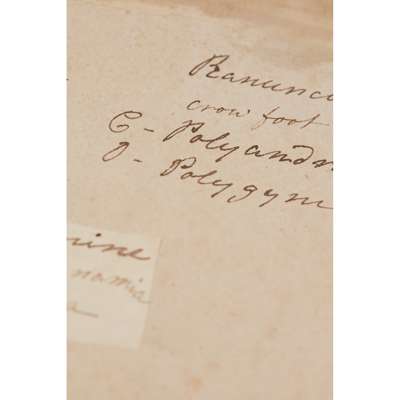 Ranuncu
crow foot
C - Polyand
O - Polygyni
rine
namia
a